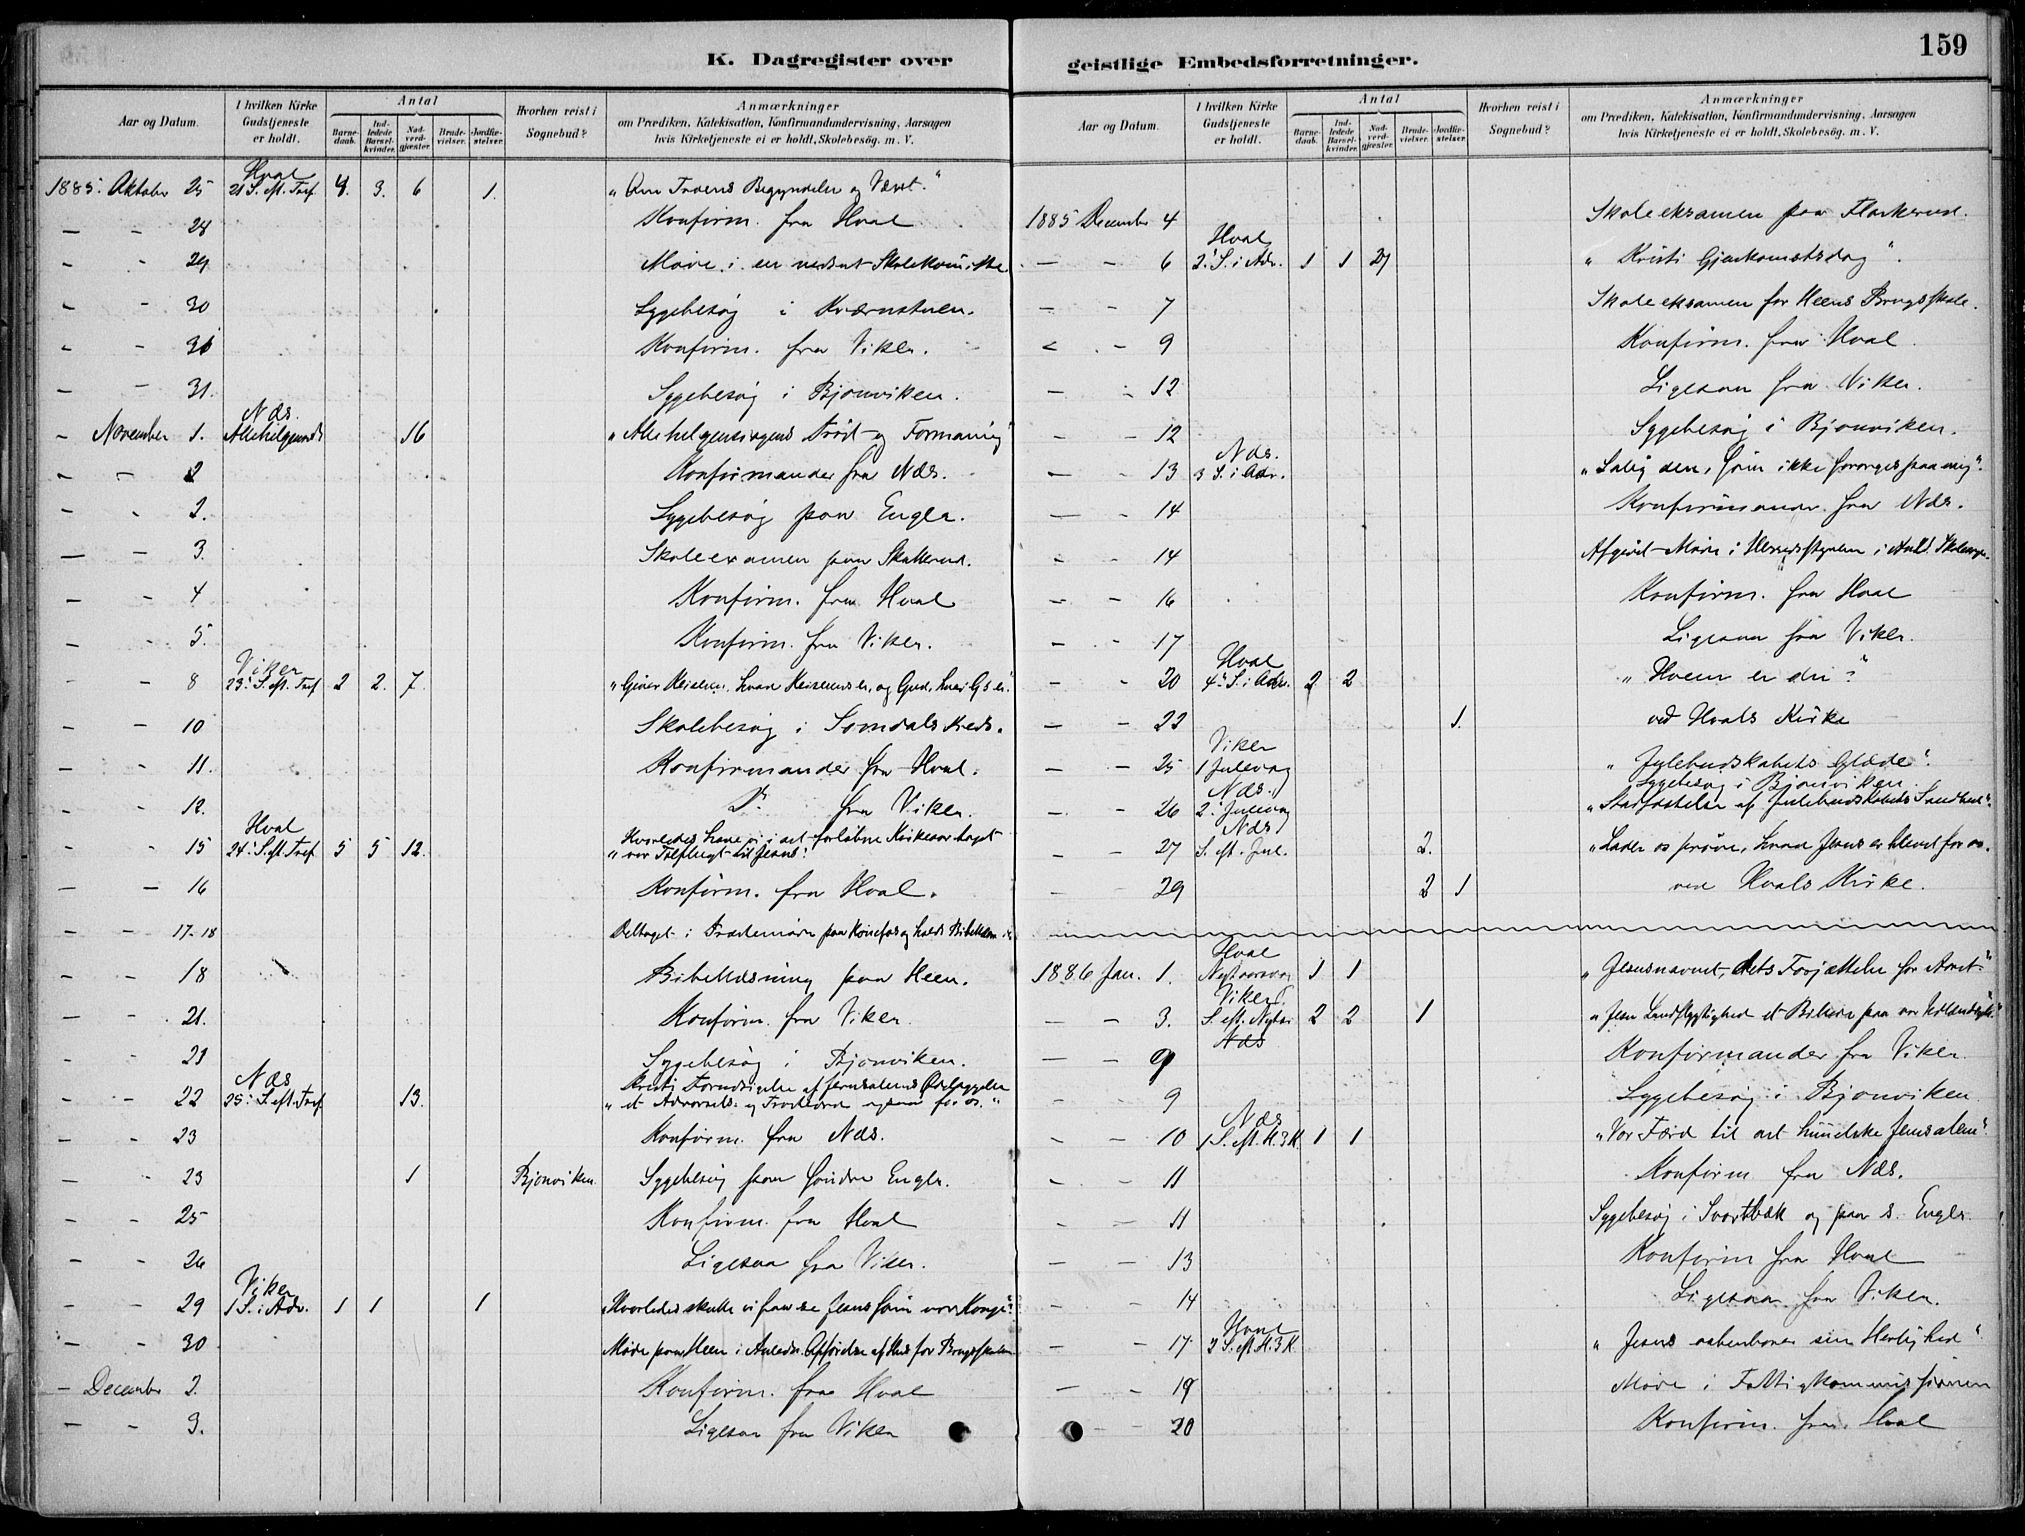 159
K. Dagregister over
geistlige Embedsforretninger.
Aar og Datum.
I hvilken Kirke Gudstjeneste er holdt.
Antal
Barne-daab.
Ind-ledede Barsel-kvinder.
Nad-verd-gjæster.
Brude-vielser.
Jordfæ-stelser.
Hvorhen reist i Sognebud?
Anmærkninger
om Prædiken, Katekisation, Konfirmandundervisning, Aarsagen
hvis Kirketjeneste ei er holdt, Skolebesøg. m. V.
1885. Oktober 25 Hval 21 S. eft. Tref. 4. 3. 6 1. "Om Troens Begyndelse og Væxt."
— — 28 Konfirm. fra Hval
- - 29 Møde i en nedsat Skolekomite
- - 30 Sygebesøg i Kværnstuen.
- - 31 Konfirm. fra Viker.
- - 31. Sygebesøg i Bjonviken.
- November 1. Næs. Allehelgensd. 16 "Allehelgensdagens Trøst og Formaning"
- - 2 Konfirmander fra Næs.
- - 2. Sygebesøg paa Engla.
- - 3. Skoleexamen paa Skallerud.
- - 4 Konfirm. fra Hval
- - 5. Konfirm. fra Viker.
- - 8 Viker 23. S. eft. Tref 2 2. 7. "Giver Keiseren, hvad Keiserens er, og Gud, hvad G.s er."
- - 10 Skolebesøg i Somdals Kreds.
- - 11. Konfirmander fra Hval.
- - 12. Do. fra Viker.
- - 15 Hval 24. S. eft. Tref 5 5 12. Hvorledes have vi i det forløbne Kirkeaar taget
"vor Tilflugt til Jesus?
— — 16 Konfirm. fra Hval.
- - 17-18 Deltaget i
- - 18 Bibellæsning paa Heen.
- - 21. Konfirm. fra Viker.
- - 21 Sygebesøg i Bjonviken.
- - 22 Næs 25. S. eft. Tref 13. Kristi Forudsigelse af Jerusalems Ødelæggelse
"et Advarsels- og Trøsteord ogsaa for os."
- - 23 Konfirm. fra Næs.
- - 23 1 Bjonviken. Sygebesøg paa søndre Engla.
- - 25 Konfirm. fra Hval
- - 26 Ligesaa fra Viker.
- - 29 Viker 1 S. i Adv. 1 1 1 "Hvorledes skulle vi faa se Jesus som vor Konge?"
- - 30 Møde paa Heen i Anledn. Opførelse af Hus for Brugsskolen
- December 2. Konfirm. fra Hval
- - 3. Ligesaa fra Viker
Aar og Datum.
I hvilken Kirke Gudstjeneste er holdt.
Antal
Barne-daab.
Ind-ledede Barsel-kvinder.
Nad-verd-gjæster.
Brude-vielser.
Jordfæ-stelser.
Hvorhen reist i Sognebud?
Anmærkninger
om Prædiken, Katekisation, Konfirmandundervisning, Aarsagen
hvis Kirketjeneste ei er holdt, Skolebesøg. m. V.
1885 December 4 Skoleeksamen paa Flaskerud.
— - 6 Hval 2. S. i Adv. 1 1 21 "Kristi Gjenkomstsdag".
— - 7 Skoleeksamen for Heens Brugsskole.
- - 9 Konfirm. fra Hval.
— - 12 Ligesaa fra Viker.
- - 12 Sygebesøg i Bjonviken.
— - 13 Næs. 3 S. i Adv. "Salig den, som ikke forarges paa mig".
— - 14 Konfirmander fra Næs.
- - 14 Møde i Herredsstyrelsen i Anled.
— - 16 Konfirm. fra Hval
— - 17 Ligesaa fra Viker.
- - 20 Hval 4. S. i Adv. 2 2 "Hvem er du?"
— - 22 1. ved Hvals Kirke
— - 25 Viker 1 Juledag "Julebudskabets Glæde".
Sygebesøg i Bjonviken.
- - 26 Næs. 2. Juledag "Stadfæstelse af Julebudskabets Sandhed".
- - 27 Næs S. eft. Jul. 2. "Lader os prøve, hvad Jesus er blevet for os.
- - 29 2 1 ved Hvals Kirke.
1886 Jan. 1. Hval Nytaarsdag 1 1 "Jesusnavnet, dets Forjættelse for Aaret."
— - 3. Viker S. eft. Nytaar 2 2 1 "Jesu Landflygtighed et Billede paa vor
Næs
— — 9 Konfirmander fra Viker.
- - 9 Sygebesøg i Bjonviken
- - 10 Næs 1 S. eft. H. 3 K. 1 1 "Vor Færd til det himmelske Jerusalem".
- - 11 Konfirm fra Næs.
- — 11 Sygebesøg i Svartbæk og paa s. Engla.
— — 13 Konfirm fra Hval
- - 14 Ligesaa fra Viker.
— - 17 Hval 2 S. eft. H. 3 K. "Jesus aabenbarer sin Herlighed".
— - 19 Møde i Fattigkommissionen
- 20 Konfirm. fra Hval